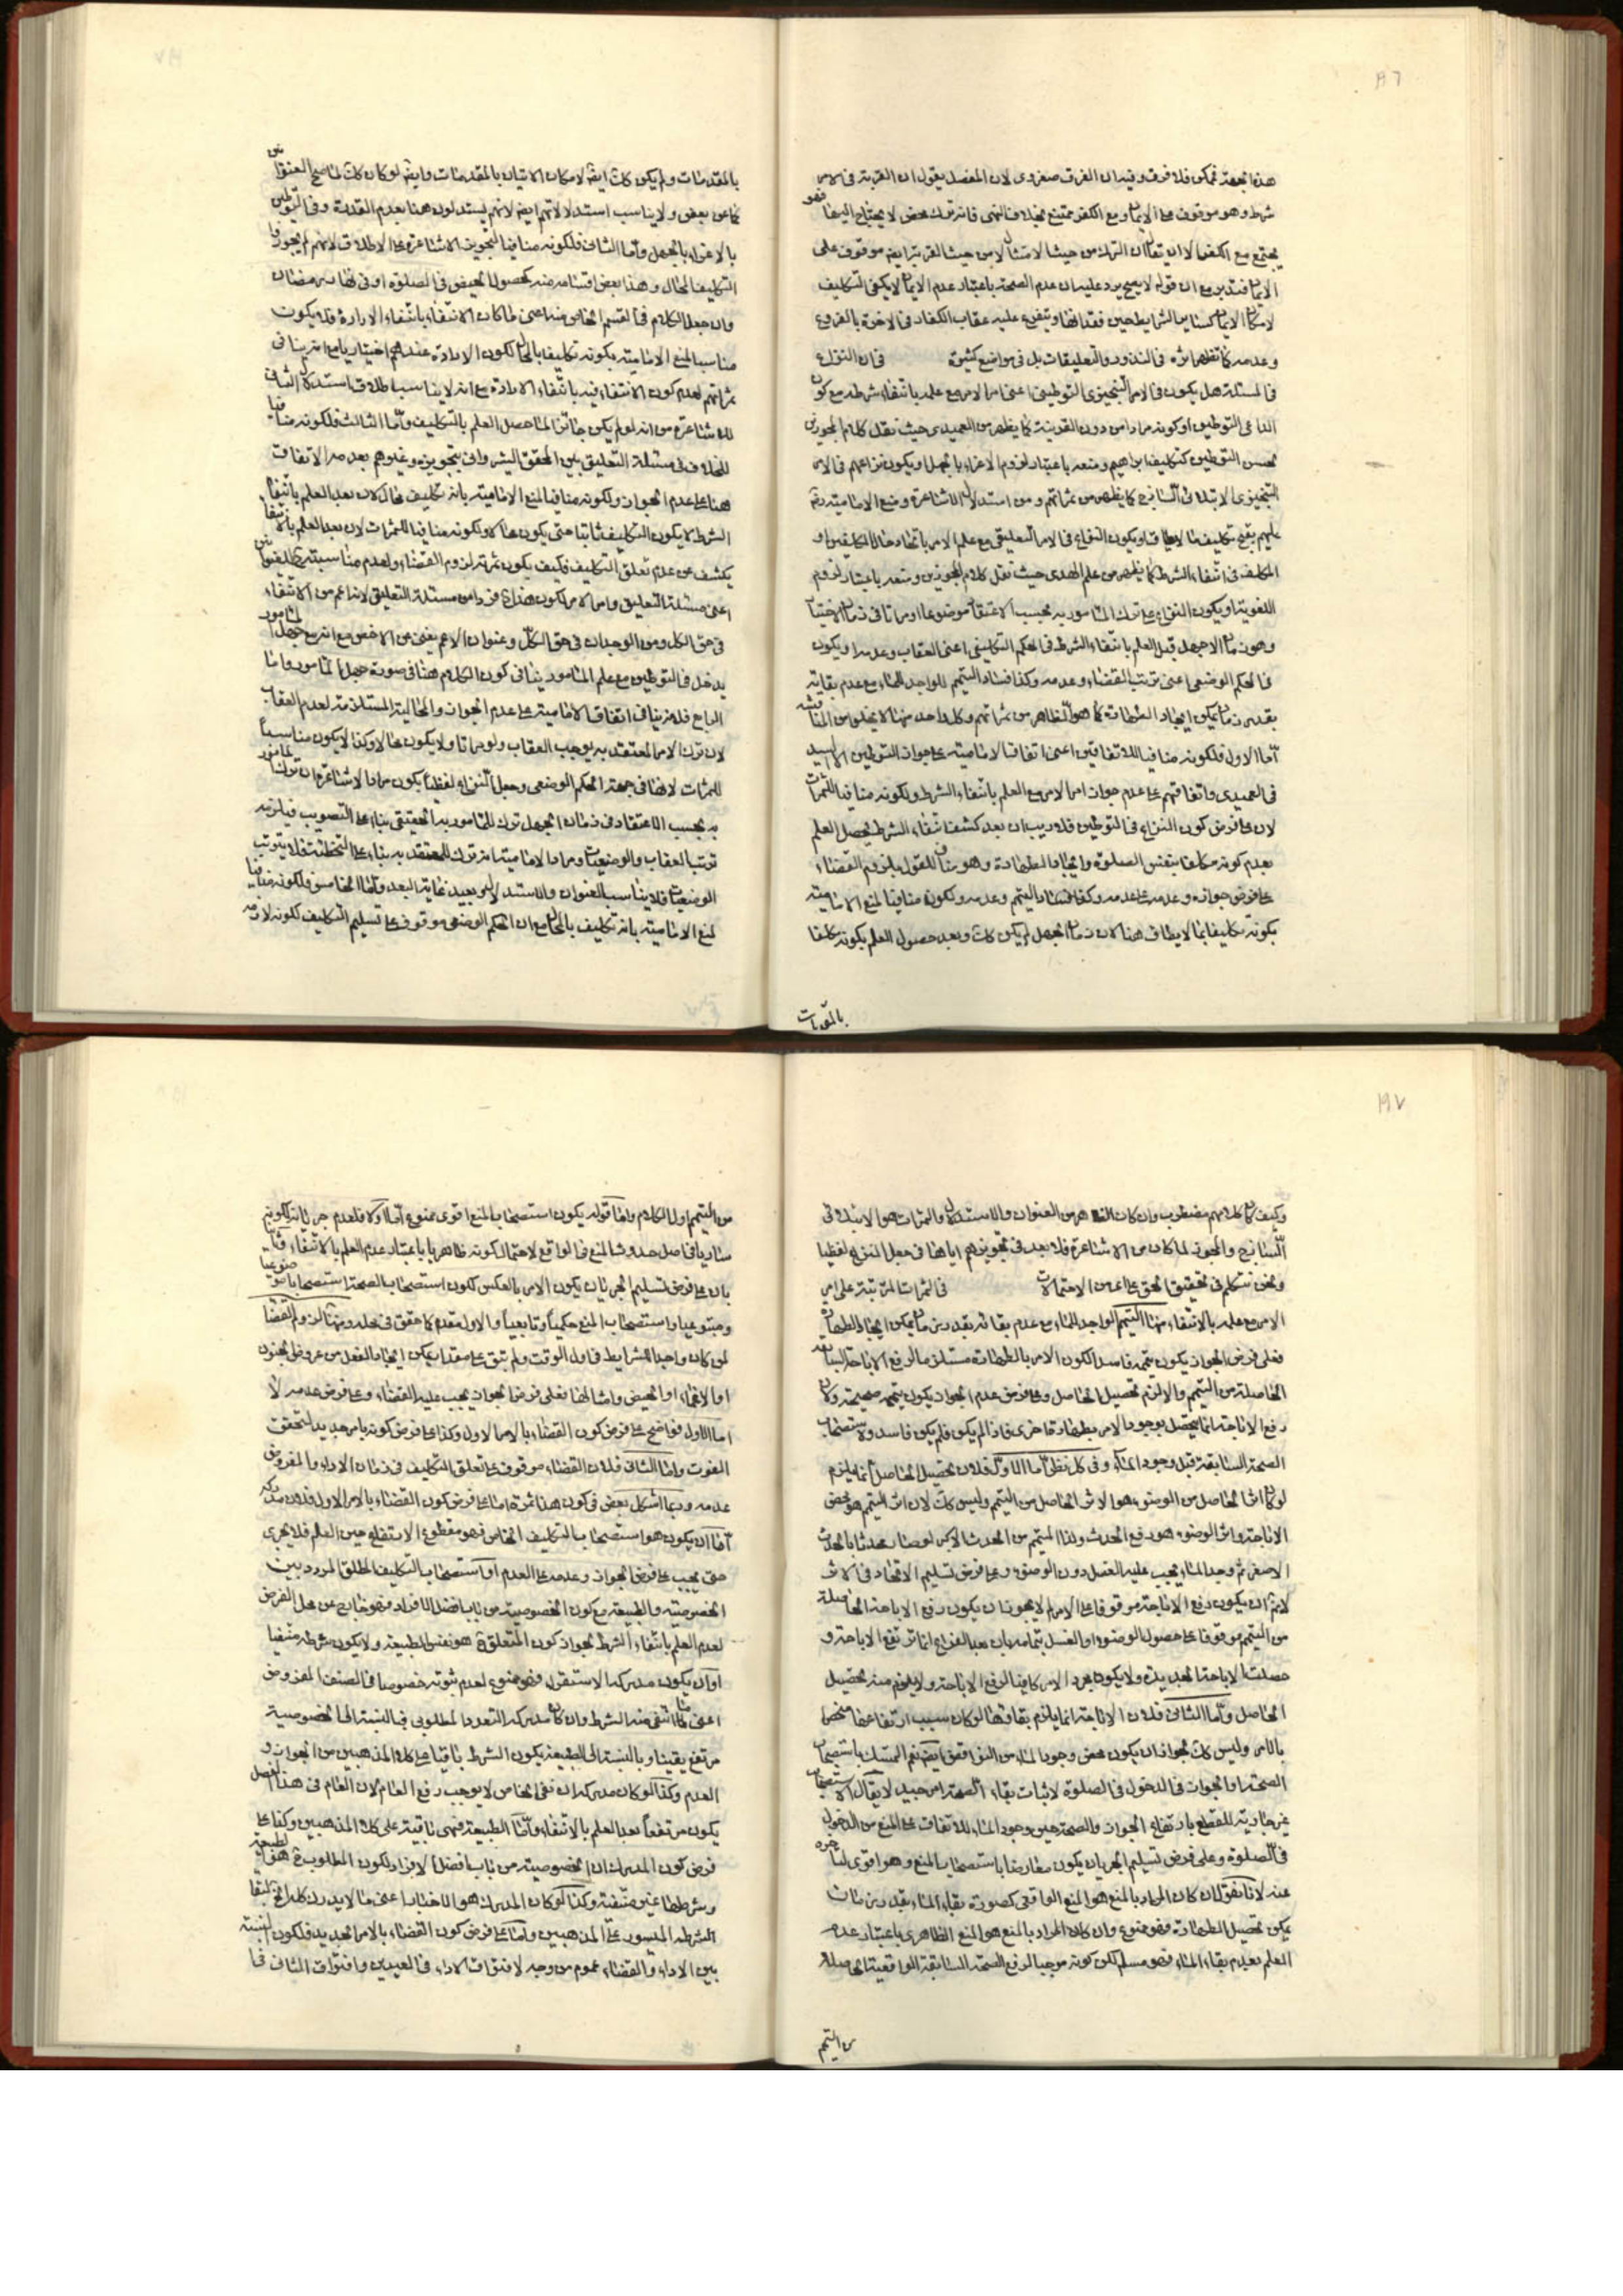 ١٨٦
هذه الجهة فمكن فلا فرق وفيه ان الفرق ضروري لان المفصل يقول ان القربة في الامر
شرط وهو موقوف على الايمان ومع الكفر ممتنع بخلاف النهي فانه ترك محض لا يحتاج اليها فهو
يجتمع مع الكفر الا ان يقال ان الترك من حيث الامتثال من حيث القربة ايضا موقوف على
الايمان فتدبر مع ان قوله لا يصح يرد عليه ان عدم الصحة باعتبار عدم الايمان لا يكفي التكليف
لامكان الايمان كساير الشرايط حين فقدانها ويتفرع عليه عقاب الكفار في الاخرة بالفروع
وعدمه كما تظهر اثره في النذور والتعليقات بل في مواضع كثيرة في ان النزاع
في المسئلة هل يكون في الامر التنجيزي التوطيني اعني امر الامر مع علمه بانتفاء شرطه مع كون
الداعي التوطين او كونه مرادا من دون القرينة كما يظهر من العميدي حيث نقل كلام المجوزين
بحسن التوطين كتكليف ابراهيم ومنعه باعتبار لزوم الاغراء بالجهل او يكون نزاعهم في الامر
التنجيزي الابتلائي الساذج كما يظهر من ثمراتهم ومن استدلال الاشاعرة ومنع الامامية رده
عليهم بقبح تكليف ما لا يطاق او يكون النزاع في الامر التعليقي مع علم الامر باتحاد حال المكلفين او
المكلف في انتفاء الشرط كما يظهر من علم الهدى حيث نقل كلام المجوزين ومنعه باعتبار لزوم
اللغوية او يكون النزاع في ترك المامور به بحسب الاعتقاد موضوعا او مراتا في زمان الاختيار
وهو زمان الجهل قبل العلم بانتفاء الشرط في الحكم التكليفي اعني العقاب وعدمه او يكون
في الحكم الوضعي اعني ترتب القضاء وعدمه وكذا فساد التيمم للواجد للماء مع عدم بقائه
بقدر زمان يمكن ايجاد الطهارة كما هو الظاهر من ثمراتهم وكل واحد منها لا يخلو من المناقشة
اما الاول فلكونه منافيا للاتفاقين اعني اتفاق الامامية على جواز التوطين الا السيد
في العميدي واتفاقهم على عدم جواز امر الامر مع العلم بانتفاء الشرط ولكونه منافيا للثمرات
لان على فرض كون النزاع في التوطين فلا ريب ان بعد كشف انتفاء الشرط يحصل العلم
بعدم كونه مكلفا بنفس الصلوة وايجاد الطهارة وهو مناف للقول بلزوم القضاء
على فرض جوازه وعدمه على عدمه وكذا فساد التيمم وعدمه ولكونه منافيا لمنع الامامية
بكونه تكليفا بما لا يطاق هنا لان زمان الجهل لم يكن كك وبعد حصول العلم يكون مكلفا
بالمقدمات
بالمقدمات ولم يكن كك ايضا لامكان الاتيان بالمقدمات وايضا لو كان كك لما صح العنوان
كما عن بعض ولا يناسب استدلالاتهم ايضا لانهم يستدلون هنا بعدم القدرة وفي التوطين
بالاغراء بالجهل واما الثاني فلكونه منافيا لتجويز الاشاعرة على الاطلاق لانهم لم يجوزوا
التكليف المحال وهذا بعض اقسامه منه كحصول الحيض في الصلوة او في نهار رمضان
وان جعل الكلام في القسم الخاص منه اعني ما كان الانتفاء بانتفاء الارادة فلا يكون
مناسبا لمنع الامامية بكونه تكليفا بالمحال لكون الارادة عندهم اختياريا مع انه ينافي
ثمراتهم لعدم كون الانتفاء فيه بانتفاء الارادة مع انه لا يناسب اطلاق استدلال الثاني
للاشاعرة من انه لو لم يكن جائزا لما حصل العلم بالتكليف واما الثالث فلكونه منافيا
للخلاف في مسئلة التعليق بين المحقق الشرواني بتجويزه وغيرهم بعدمه الاتفاق
هنا على عدم الجواز ولكونه منافيا لمنع الامامية بانه تكليف محال لان بعد العلم بانتفاء
الشرط لا يكون التكليف ثابتا حتى يكون محالا ولكونه منافيا للثمرات لان بعد العلم بالانتفاء
يكشف عن عدم تعلق التكليف فكيف يكون ثمرته لزوم القضاء ولعدم مناسبته للعنوان
اعني مسئلة التعليق وامر الامر لكون هذا فردا من مسئلة التعليق لانه اعم من الانتفاء
في حق الكل ومن الوجدان في حق الكل وعنوان الاعم يغني عن الاخص مع انه مع جهل المامور
يدخل في التوطين مع علم المامور ينافي كون الكلام هنا في صورة جهل المامور واما
الرابع فلانه ينافي اتفاق الامامية على عدم الجواز والمحالية المستلزمة لعدم العقاب
لان ترك الامر المعتقد به يوجب العقاب ولو مراتا ولا يكون محالا وكذا لا يكون مناسبا
للثمرات لانها في جهة الحكم الوضعي وجعل النزاع لفظيا بكون مراد الاشاعرة ان ترك المامور
به بحسب الاعتقاد في زمان الجهل ترك للمامور به الحقيقي بناء على التصويب فيلزمه
ترتب العقاب والوضعيات ومراد الامامية انه ترك للمعتقد به بناء على التخطئة فلا يترتب
الوضعيات فلا يناسب العنوان والاستدلال وبعيد غاية البعد واما الخامس فلكونه منافيا
لمنع الامامية بانه تكليف بالمحال مع ان الحكم الوضعي موقوف على تسليم التكليف لكونه لازمه
١٨٧
وكيف كان كلامهم مضطرب وان كان الظاهر من العنوان والاستدلال والثمرات هو الابتلائي
الساذج والمجوز لما كان من الاشاعرة فلا بعد في تجويزهم اياها في جعل النزاع لفظيا
ونحن نتكلم في تحقيق الحق على اي من الاحتمالات في الثمرات المترتبة على امر
الامر مع علمه بالانتفاء منها التيمم الواجد للماء مع عدم بقائه بقدر زمان يمكن ايجاد الطهارة
فعلى فرض الجواز يكون تيممه فاسدا لكون الامر بالطهارة مستلزما لرفع الاباحة السابقة
الحاصلة من التيمم والا لزم تحصيل الحاصل وعلى فرض عدم الجواز يكون تيممه صحيحا ولان
رفع الاباحة انما يحصل بوجود الامر بطهارة اخرى فاذا لم يكن فلم يكن فاسدا ولاستصحاب
الصحة السابقة قبل وجود الماء وفي كل نظر اما الاول فلان تحصيل الحاصل انما يلزم
لو كان اثر الحاصل من الوضوء هو الاثر الحاصل من التيمم وليس كك لان اثر التيمم هو محض
الاباحة واثر الوضوء هو رفع الحدث ولذا المتيمم من الحدث الاكبر لو صار محدثا بالحدث
الاصغر ثم وجد الماء يجب عليه الغسل دون الوضوء وعلى فرض تسليم الاتحاد في الاثر
لا نم ان يكون رفع الاباحة موقوفا على الامر لم لا يجوز ان يكون رفع الاباحة الحاصلة
من التيمم موقوفا على حصول الوضوء او الغسل بتمامه بان بعد الفراغ انما ترتفع الاباحة و
حصلت الاباحة الجديدة ولا يكون مجرد الامر كافيا لرفع الاباحة ولا يلزم منه تحصيل
الحاصل واما الثاني فلان الاباحة انما يلزم بقاؤها لو كان سبب ارتفاعها منحصرا
بالامر وليس كك لجواز ان يكون محض وجود الماء من النواقض ايضا نعم التمسك باستصحاب
الصحة او الجواز في الدخول في الصلوة لاثبات بقاء الصحة امر جيد لا يقال الاستصحاب
غير جارية للقطع بارتفاع الجواز والصحة حين وجود الماء للاتفاق على المنع من الدخول
في الصلوة وعلى فرض تسليم الجريان يكون معارضا باستصحاب المنع وهو اقوى لتاخره
عنه لانا نقول ان كان المراد بالمنع هو المنع الواقعي كصورة بقاء الماء بقدر زمان
يمكن تحصيل الطهارة فهو ممنوع وان كان المراد بالمنع هو المنع الظاهري باعتبار عدم
العلم بعدم بقاء الماء فهو مسلم لكن كونه موجبا لرفع الصحة السابقة الواقعية الحاصلة
من التيمم
من التيمم اول الكلام واما قوله يكون استصحاب المنع اقوى ممنوع اما اولا فلعدم جريانه لكونه
ساريا في اصل حدوث المنع في الواقع لاحتمال كونه ظاهريا باعتبار عدم العلم بالانتفاء وثانيا
بان على فرض تسليم الجريان يكون الامر بالعكس لكون استصحاب الصحة استصحابا موضوعيا
ومتبوعيا واستصحاب المنع حكميا وتابعيا والاول مقدم كما حقق في محله ومنها لزوم القضاء
لمن كان واجد الشرايط في اول الوقت ولم يبق على مقدار يمكن ايجاد الفعل من عروض الجنون
او الاغماء او الحيض وامثالها فعلى فرض الجواز يجب عليه القضاء وعلى فرض عدمه لا
اما الاول فواضح على فرض كون القضاء بالامر الاول وكذا على فرض كونه بامر جديد لتحقق
الفوت واما الثاني فلان القضاء موقوف على تعلق التكليف في زمان الاداء والمفروض
عدمه وربما اشكل بعض في كون هذا ثمرة اما على فرض كون القضاء بالامر الاول فلان مدركه
اما ان يكون هو استصحاب التكليف الخاص فهو مقطوع الارتفاع حين العلم فلا يجري
حتى يجب على فرض الجواز وعدمه على العدم او استصحاب التكليف المطلق المردد بين
الخصوصية والطبيعة مع كون الخصوصية من باب افضل الافراد فهو خارج عن محل الفرض
لعدم العلم بانتفاء الشرط لجواز كون المتعلق هو نفس الطبيعة ولا يكون شرطه منتفيا
او ان يكون مدركه الاستقراء فهو ممنوع لعدم ثبوته خصوصا في الصنف المفروض
اعني ما انتفى منه الشرط وان كان مدركه التعدد المطلوبي فبالنسبة الى الخصوصية
مرتفع يقينا وبالنسبة الى الطبيعة يكون الشرط باقيا على كلا المذهبين من الجواز و
العدم وكذا لو كان مدركه ان نفي الخاص لا يوجب رفع العام لان العام في هذا الفصل
يكون مرتفعا بعد العلم بالانتفاء واما الطبيعة فهي باقية على كلا المذهبين وكذا على
فرض كون المدرك ان الخصوصية من باب افضل الافراد لكون المطلوب هو الطبيعة
وشرطها غير منتفية وكذا لو كان المدرك هو الاخبار اعني ما لا يدرك كله لبقاء
الشرط الميسور على المذهبين واما على فرض كون القضاء بالامر الجديد فلكون النسبة
بين الاداء والقضاء عموم من وجه لافتراق الاداء في العيدين وافتراق الثاني في